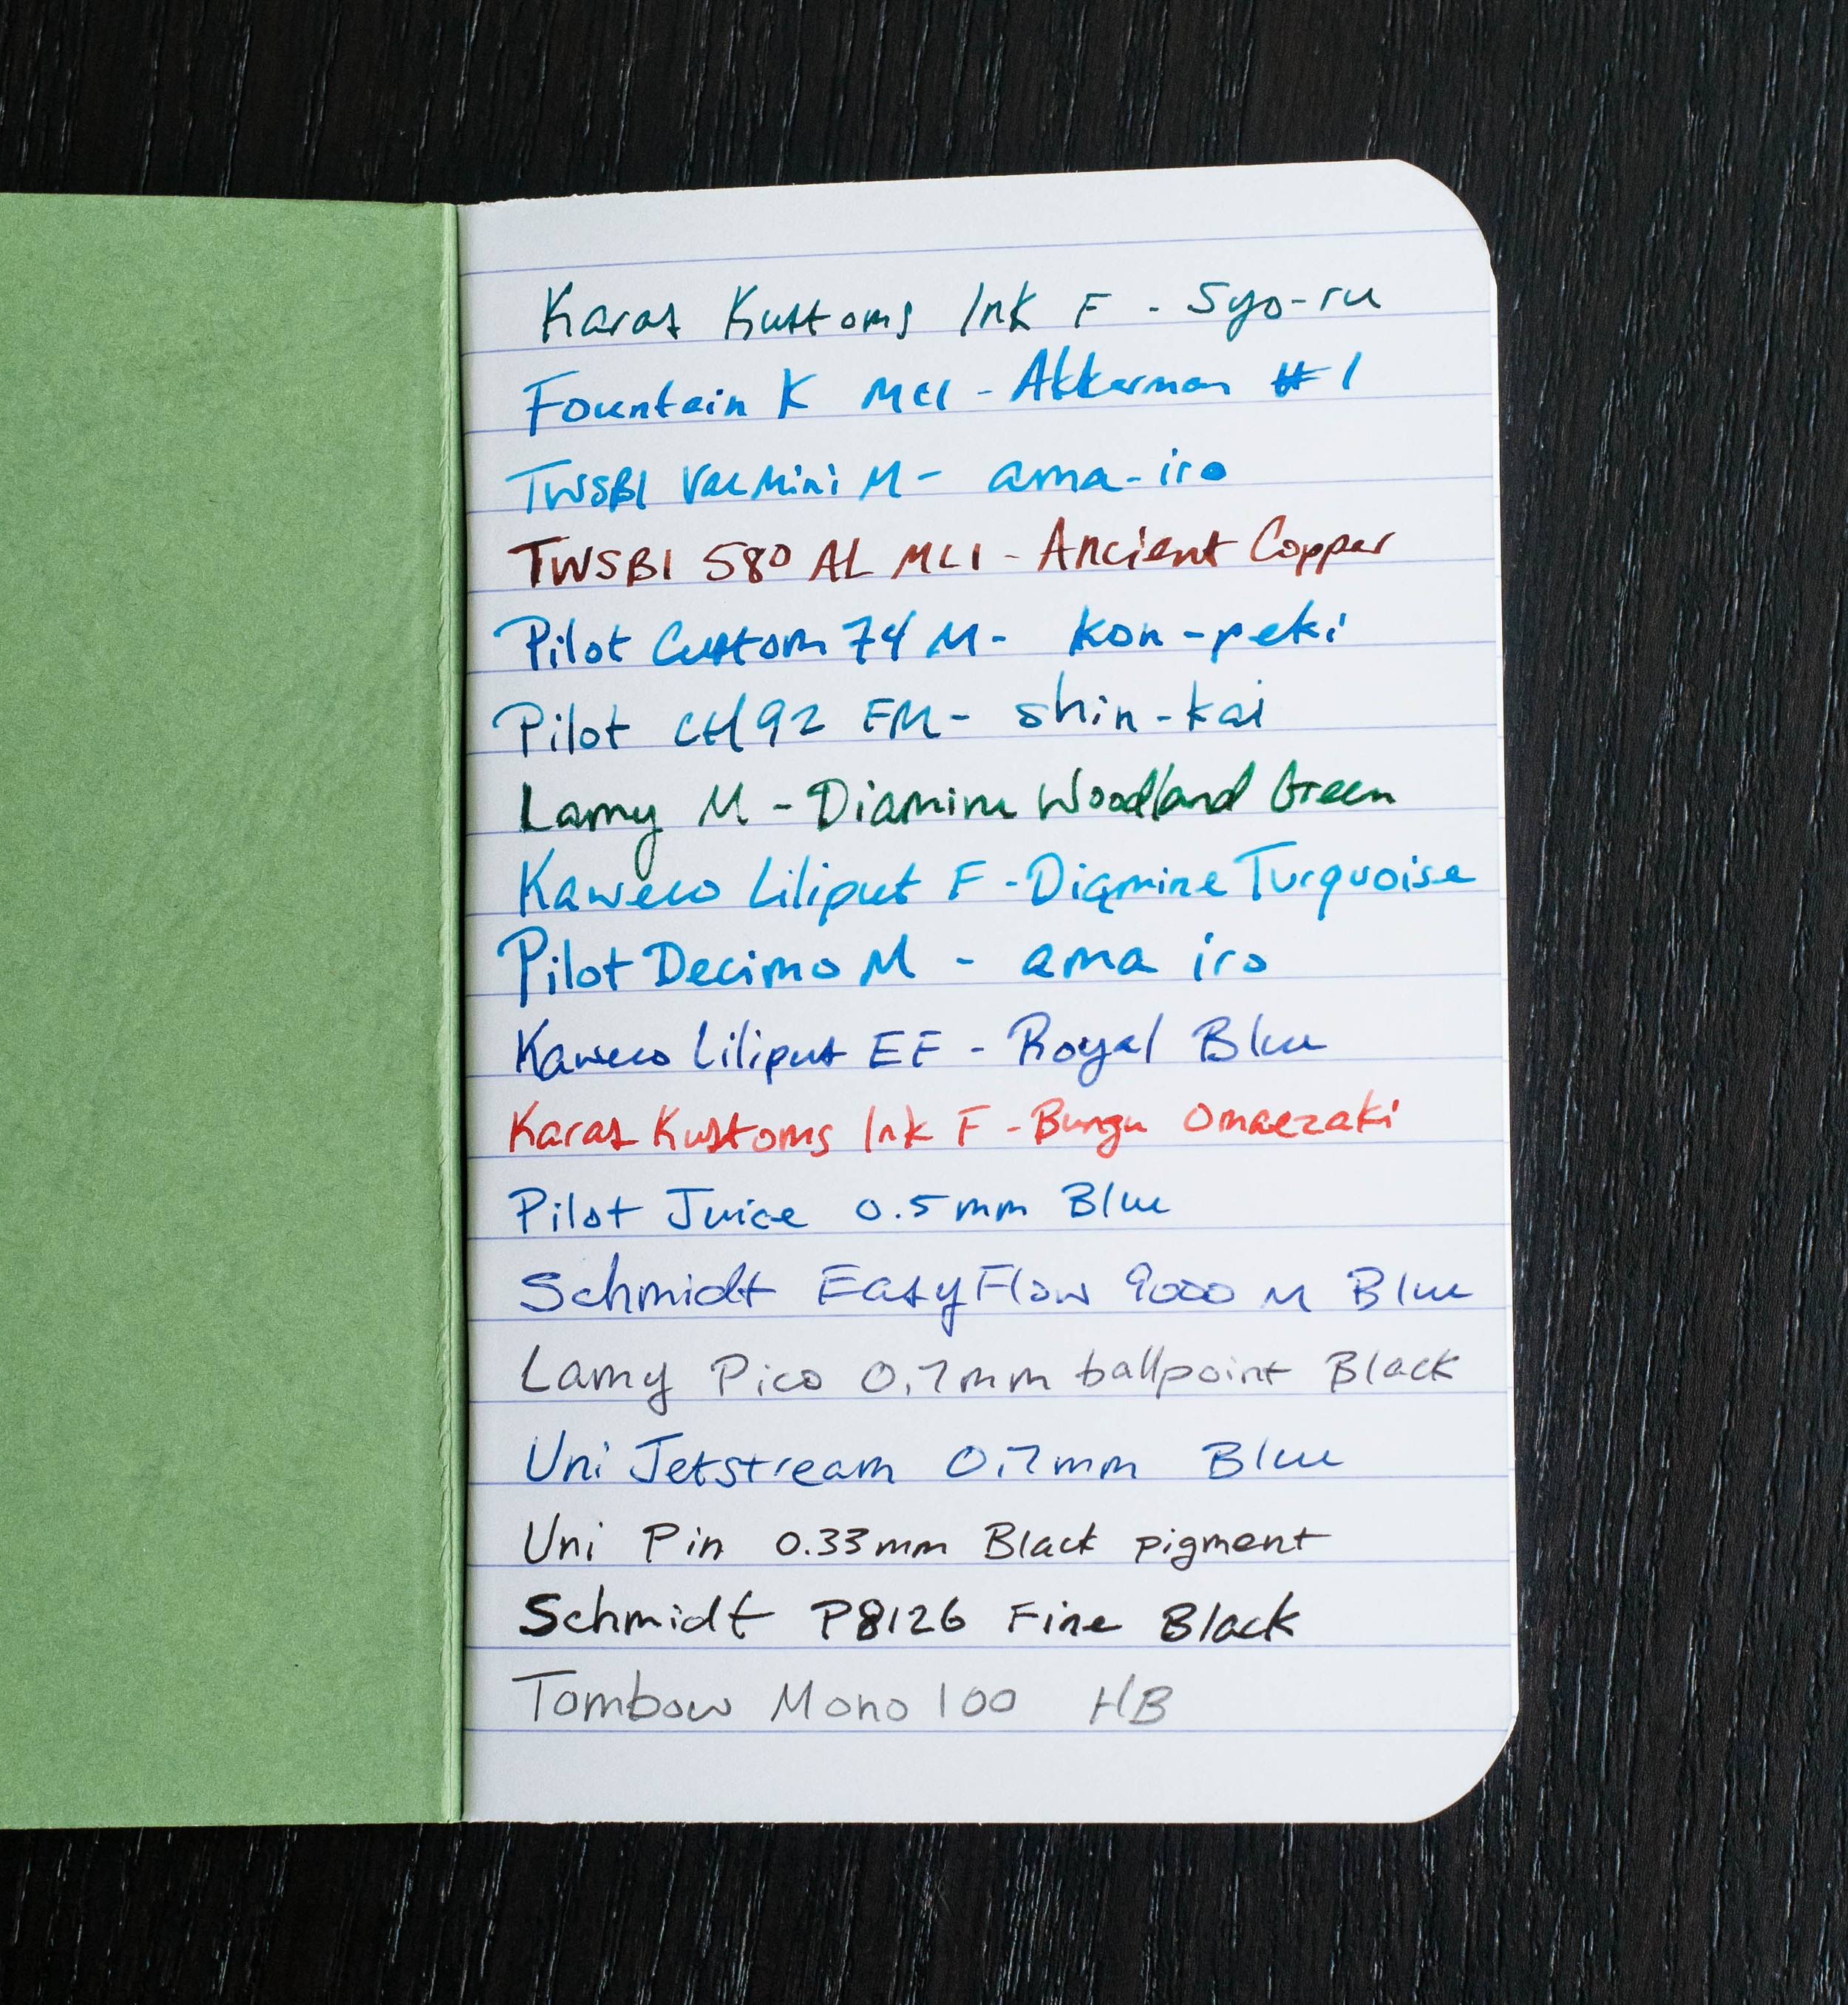 Karas Kustoms Ink F - Syo-ru
Fountain K MCI - Akkerman #1
TWSBI Vac Mini M - ama-iro
TWSBI 580 AL MCI - Ancient Copper
Pilot Custom 74 M - kon-peki
Pilot CH92 FM - shin-kai
Lamy M - Diamine Woodland Green
Kaweco Liliput F - Diamine Turquoise
Pilot Decimo M - ama iro
Kaweco Liliput EF - Royal Blue
Karas Kustoms Ink F - Bungu Omaezaki
Pilot Juice 0.5mm Blue
Schmidt EasyFlow 9000 M Blue
Lamy Pico 0.7mm ballpoint Black
Uni Jetstream 0.7mm Blue
Uni Pin 0.33mm Black pigment
Schmidt P8126 Fine Black
Tombow Mono 100 HB